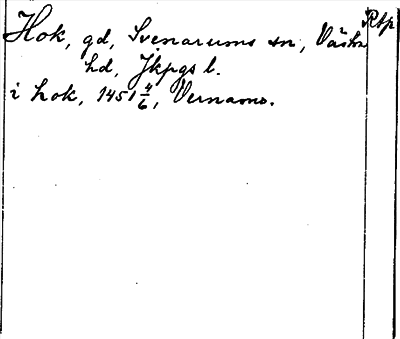 Hok, gd, Svenarums sn, Västra Rtp
hd, Jkpgs l.
i hok, 1451 4/6, Vernamo.